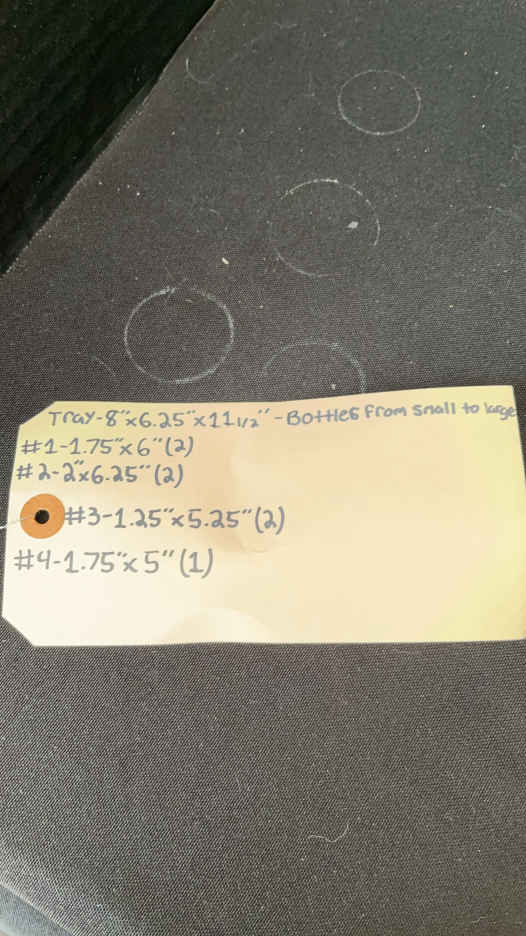 Tray-8"x6.25"x11 1/2"-Bottles from small to large
#1-1.75"x6"(2)
#2-2"x6.25"(2)
#3-1.25"x5.25"(2)
#4-1.75"x5"(1)